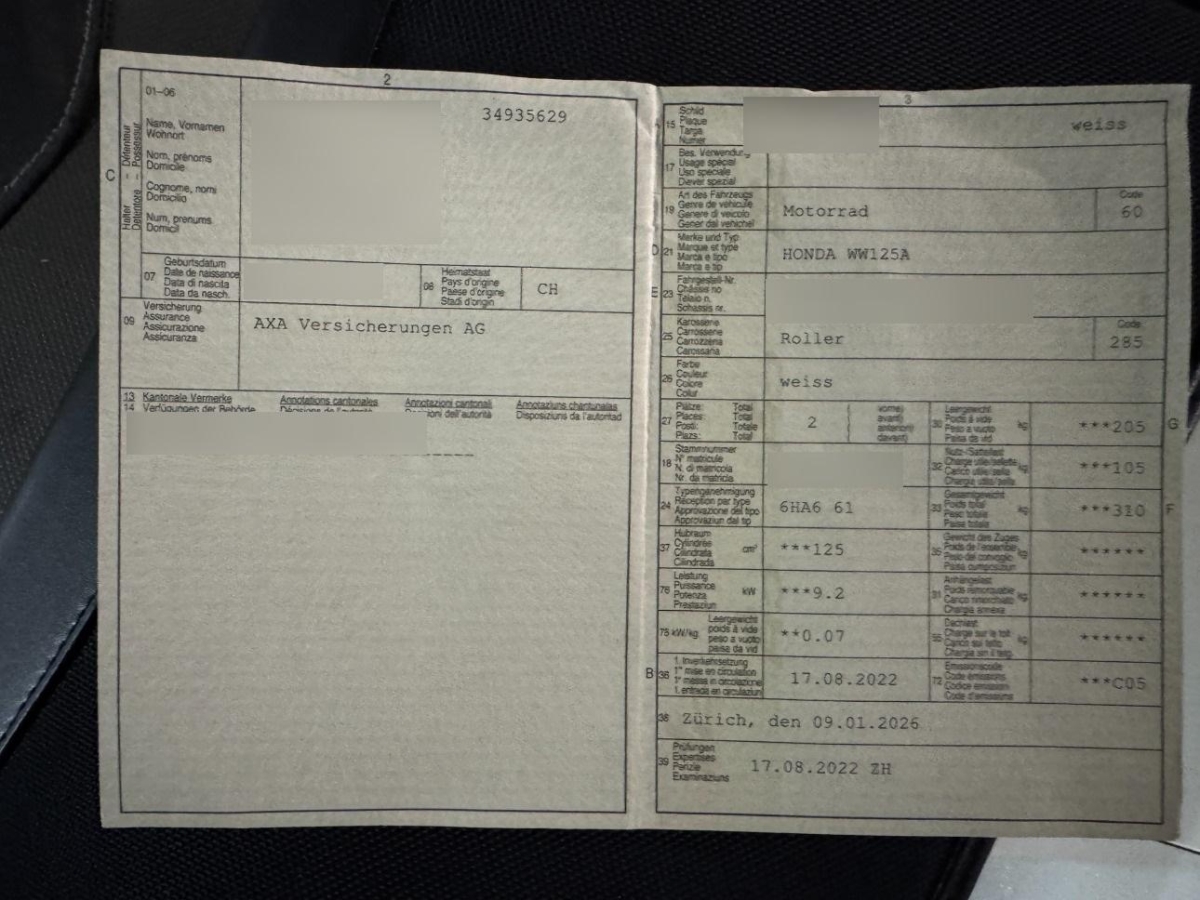 2
01–06
34935629
Name, Vornamen
Wohnort
Nom, prénoms
Domicile
Cognome, nomi
Domicilio
Num, prenums
Domicil
C
Halter – Détenteur
Detentore – Possessur
07
Geburtsdatum
Date de naissance
Data di nascita
Data da nasch.
08
Heimatstaat
Pays d'origine
Paese d'origine
Stadi d'origin
CH
09
Versicherung
Assurance
Assicurazione
Assicuranza
AXA Versicherungen AG
13 Kantonale Vermerke Annotations cantonales Annotazioni cantonali Annotaziuns chantunalas
14 Verfügungen der Behörde Décisions de l'autorité dell'autorità Disposiziuns da l'autoritad
3
15
Schild
Plaque
Targa
Numer
weiss
17
Bes. Verwendung
Usage spécial
Uso speciale
Diever spezial
19
Art des Fahrzeugs
Genre de véhicule
Genere di veicolo
Gener dal vehichel
Motorrad
Code
60
D 21
Marke und Typ
Marque et type
Marca e tipo
Marca e tip
HONDA WW125A
E 23
Fahrgestell-Nr.
Châssis no
Telaio n.
Schassis nr.
25
Karosserie
Carrosserie
Carrozzeria
Carossaria
Roller
Code
285
26
Farbe
Couleur
Colore
Colur
weiss
27
Plätze: Total
Places: Total
Posti: Totale
Plazs: Total
2
(vorne)
avant)
anteriori)
davant)
30
Leergewicht
Poids à vide
Peso a vuoto
Paisa da vid
kg
***205
G
18
Stammnummer
N° matricule
N. di matricola
Nr. da matricla
32
Nutz-/Sattellast
Charge utile/sellette
Carico utile/sella
Chargia utila/sella
kg
***105
24
Typengenehmigung
Réception par type
Approvazione del tipo
Approvaziun dal tip
6HA6 61
33
Gesamtgewicht
Poids total
Peso totale
Paisa totala
kg
***310
F
37
Hubraum
Cylindrée
Cilindrata
Cilindrada
cm³
***125
35
Gewicht des Zuges
Poids de l'ensemble
Peso del convoglio
Paisa cumposiziun
kg
******
76
Leistung
Puissance
Potenza
Prestaziun
kW
***9.2
31
Anhängelast
Poids remorquable
Carico rimorchiato
Chargia annexa
kg
******
75 kW/kg
Leergewicht
poids à vide
peso a vuoto
paisa da vid
**0.07
55
Dachlast
Charge sur le toit
Carico sul tetto
Chargia sin il tetg
kg
******
B 36
1. Inverkehrsetzung
1re mise en circulation
1a messa in circolazione
1. entrada en circulaziun
17.08.2022
72
Emissionscode
Code émissions
Codice emissioni
Code d'emissiuns
***C05
38 Zürich, den 09.01.2026
39
Prüfungen
Expertises
Perizie
Examinaziuns
17.08.2022 ZH